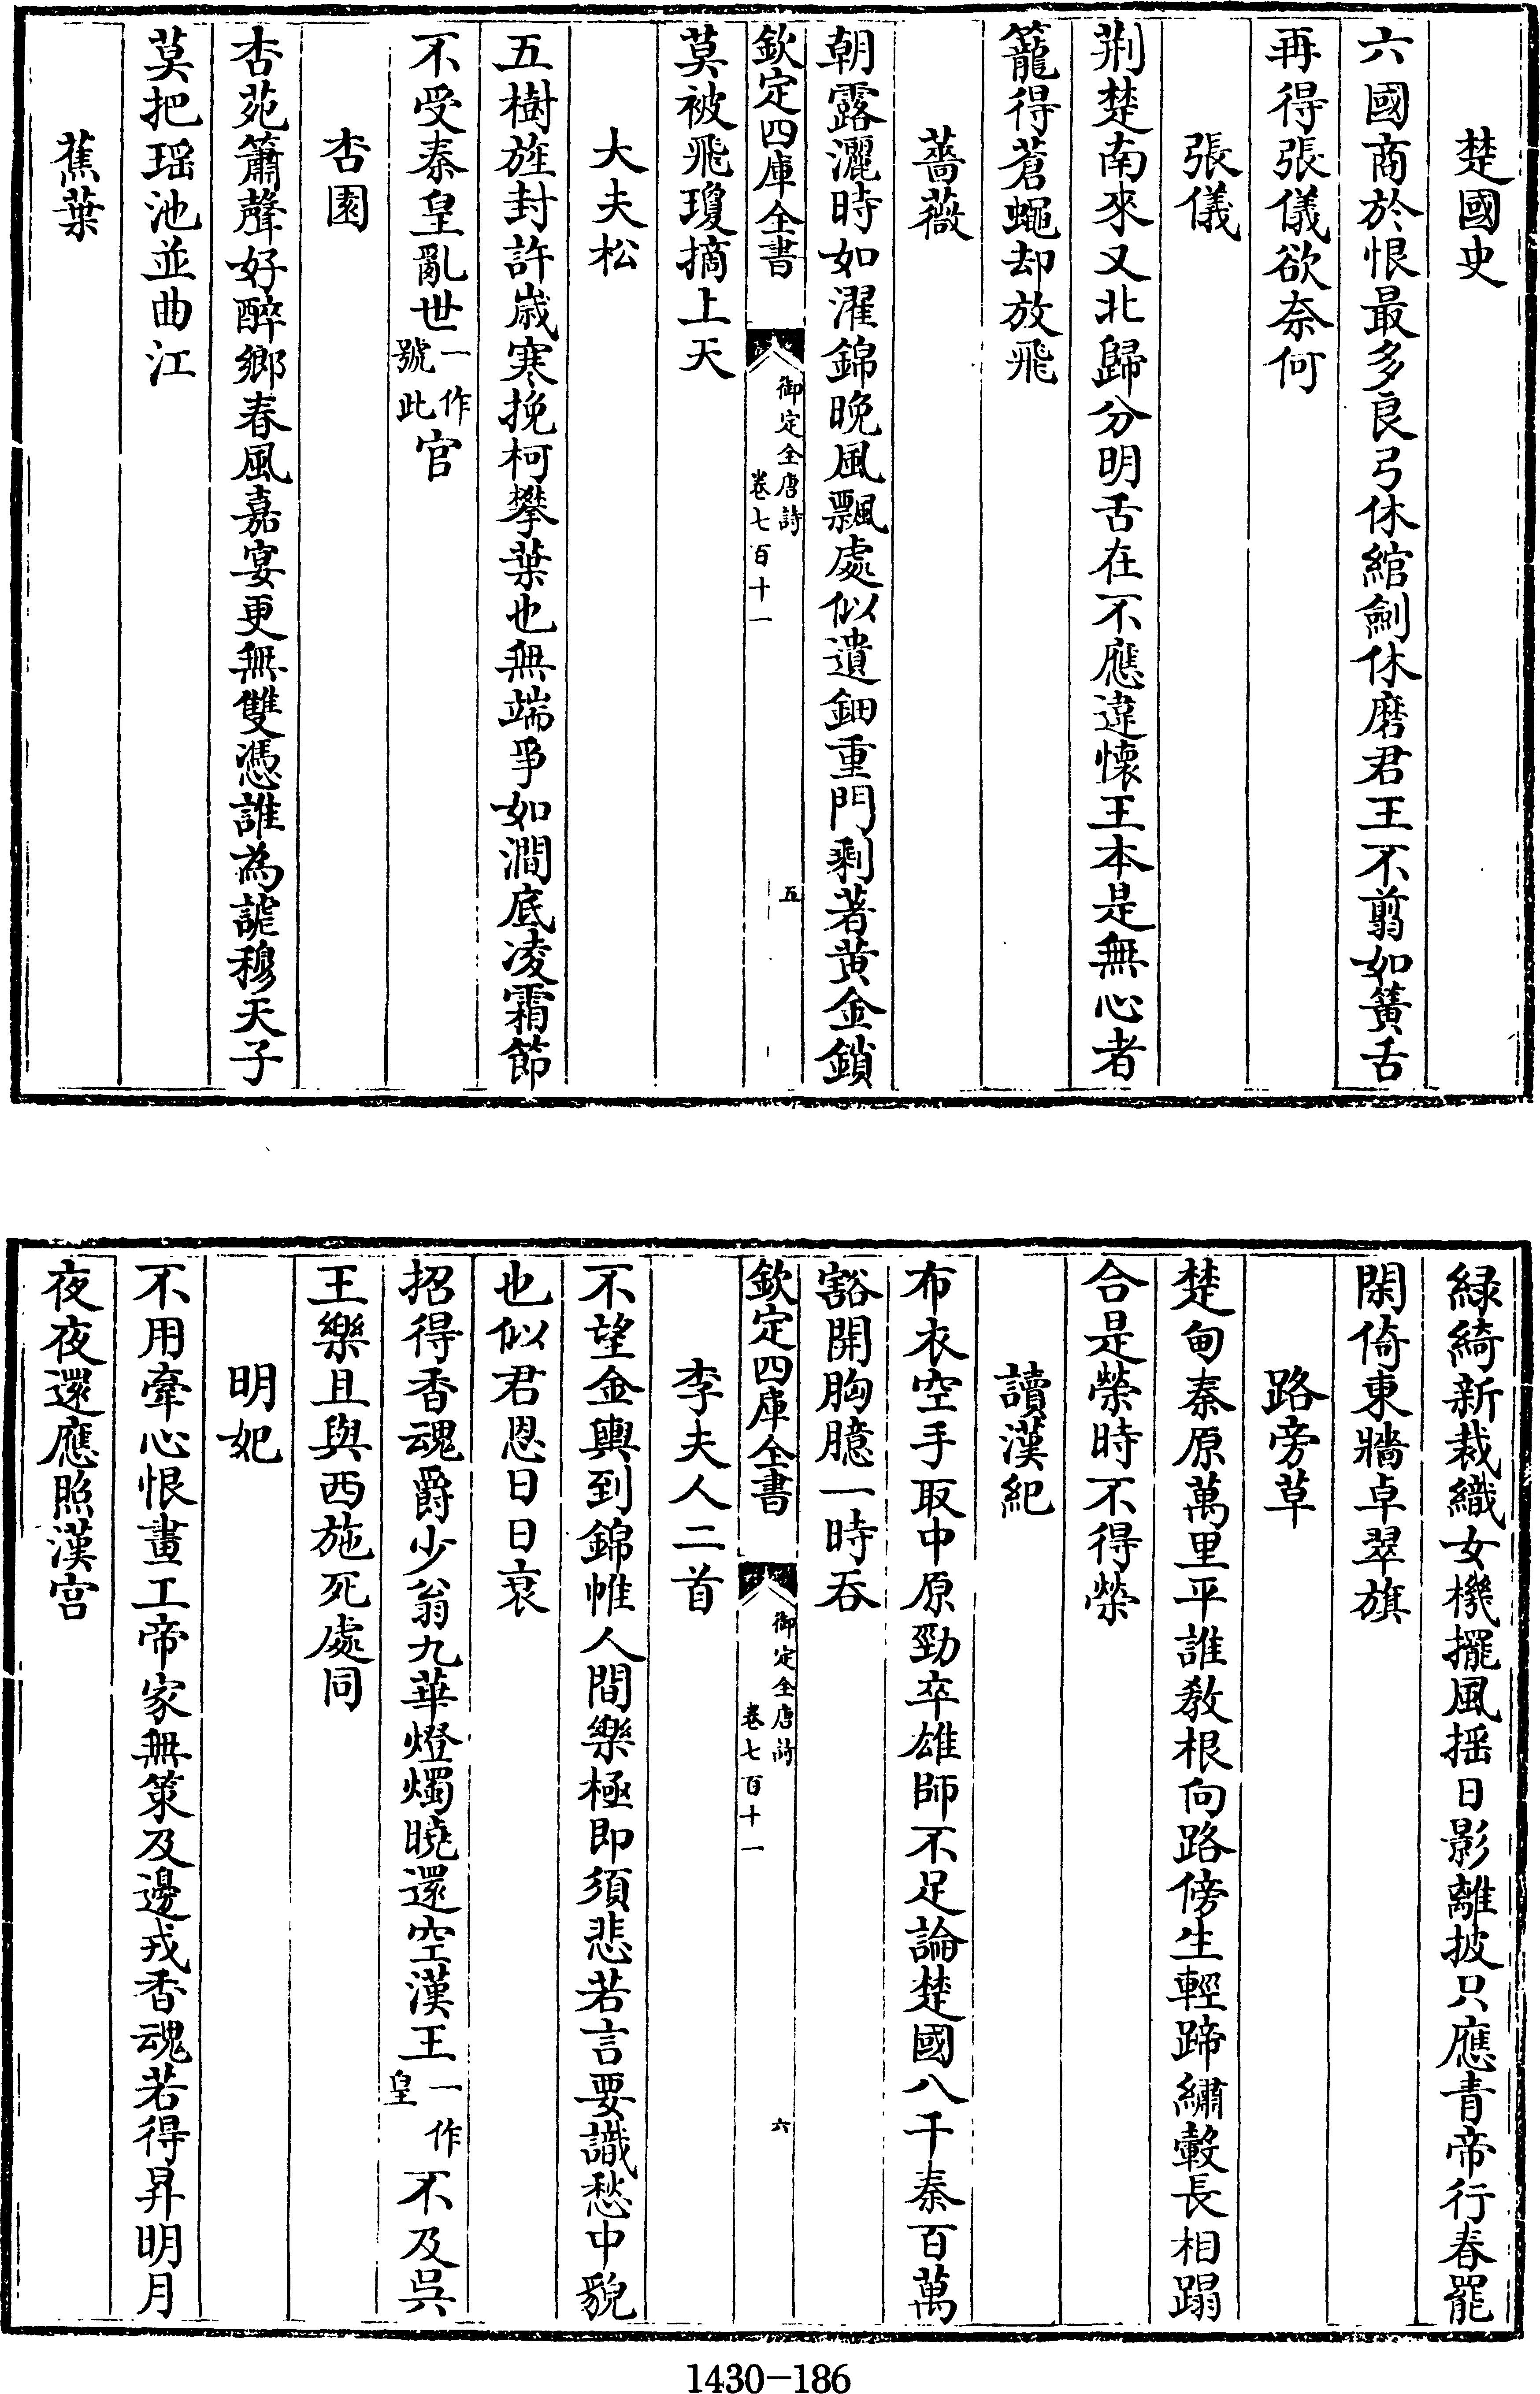 楚國史
六國商於恨最多良弓休綰劍休磨君王不翦如簧舌
再得張儀欲奈何
張儀
荆楚南來又北歸分明舌在不應違懷王本是無心者
籠得蒼蠅却放飛
薔薇
朝露灑時如濯錦晚風飄處似遺鈿重門剩著黄金鎖
欽定四庫全書
御定全唐詩
卷七百十一
五
莫被飛瓊摘上天
大夫松
五樹旌封許歳寒挽柯攀葉也無端爭如澗底凌霜節
不受秦皇亂世一作號此官
杏園
杏苑簫聲好醉鄉春風嘉宴更無雙憑誰為謔穆天子
莫把瑶池並曲江
蕉葉
緑綺新裁織女機擺風揺日影離披只應青帝行春罷
閑倚東牆卓翠旗
路旁草
楚甸秦原萬里平誰教根向路傍生輕蹄繡轂長相蹋
合是榮時不得榮
讀漢紀
布衣空手取中原勁卒雄師不足論楚國八千秦百萬
豁開胸臆一時吞
欽定四庫全書
御定全唐詩
卷七百十一
六
李夫人二首
不望金輿到錦帷人間樂極即須悲若言要識愁中貌
也似君恩日日衰
招得香魂爵少翁九華燈燭曉還空漢王一作皇不及吳
王樂且與西施死處同
明妃
不用牽心恨畫工帝家無策及邊戎香魂若得昇明月
夜夜還應照漢宫
1430-186